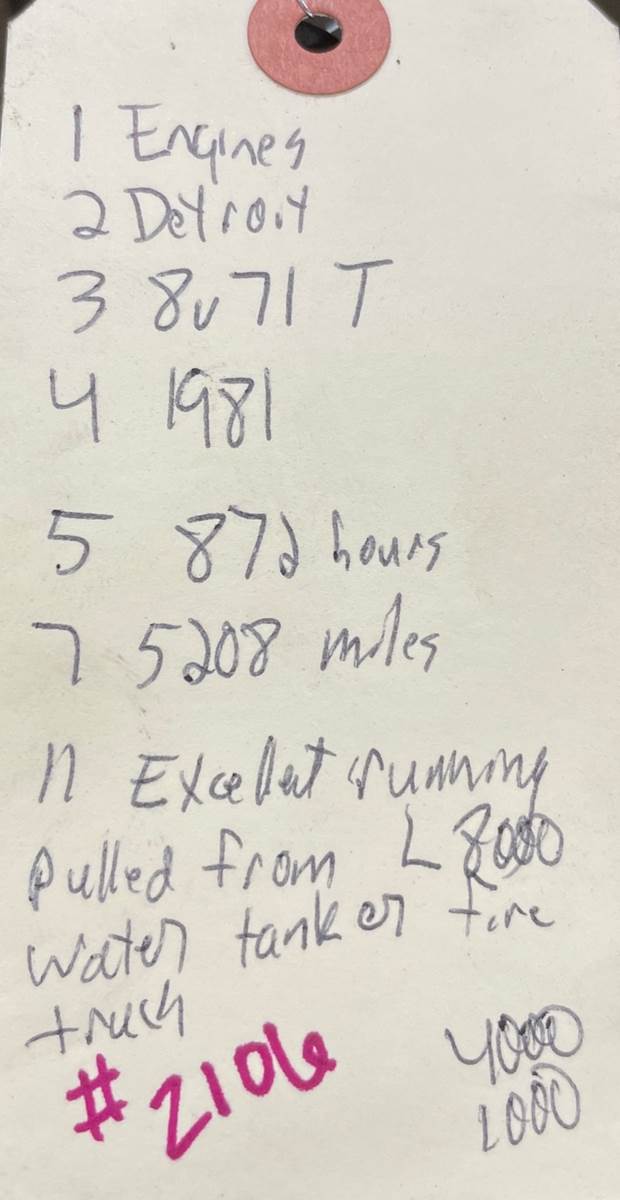 1 Engines
2 Detroit
3 8v71 T
4 1981
5 872 hours
7 5208 miles
11 Excellent running
pulled from L8000
water tanker fire
truck
#2106
4000
1000